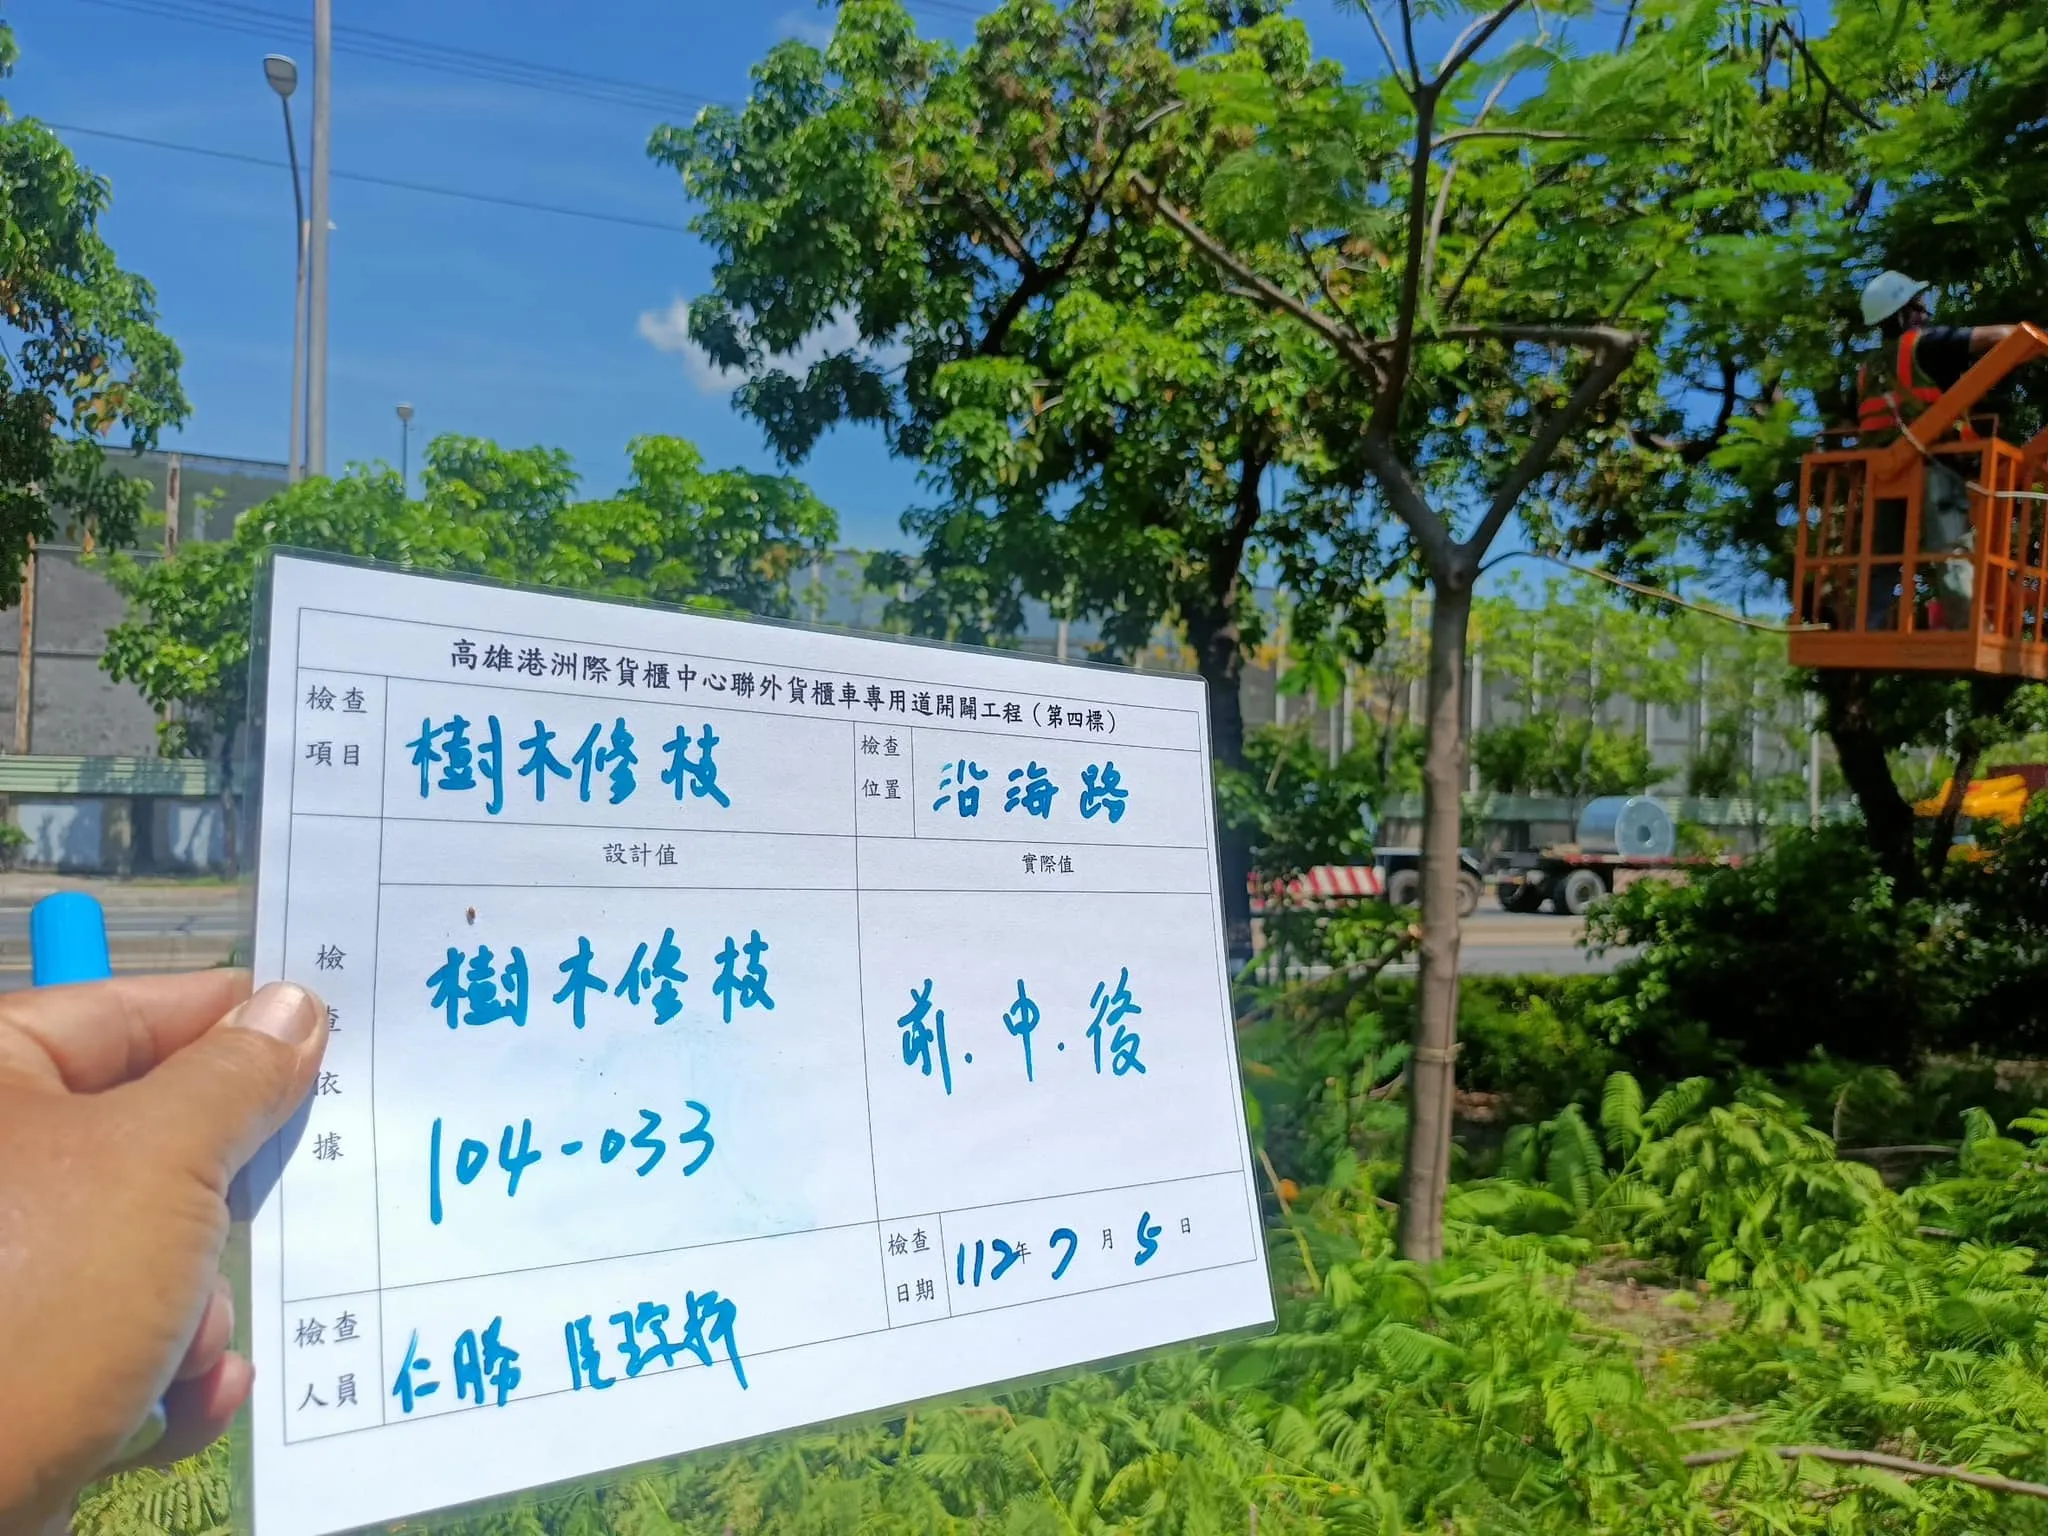 高雄港洲際貨櫃中心聯外貨櫃車專用道開闢工程（第四標）
檢查項目
樹木修枝
檢查位置
沿海路
設計值
實際值
檢查依據
樹木修枝
104-033
前.中.後
檢查人員
仁勝
檢查日期
112年7月5日